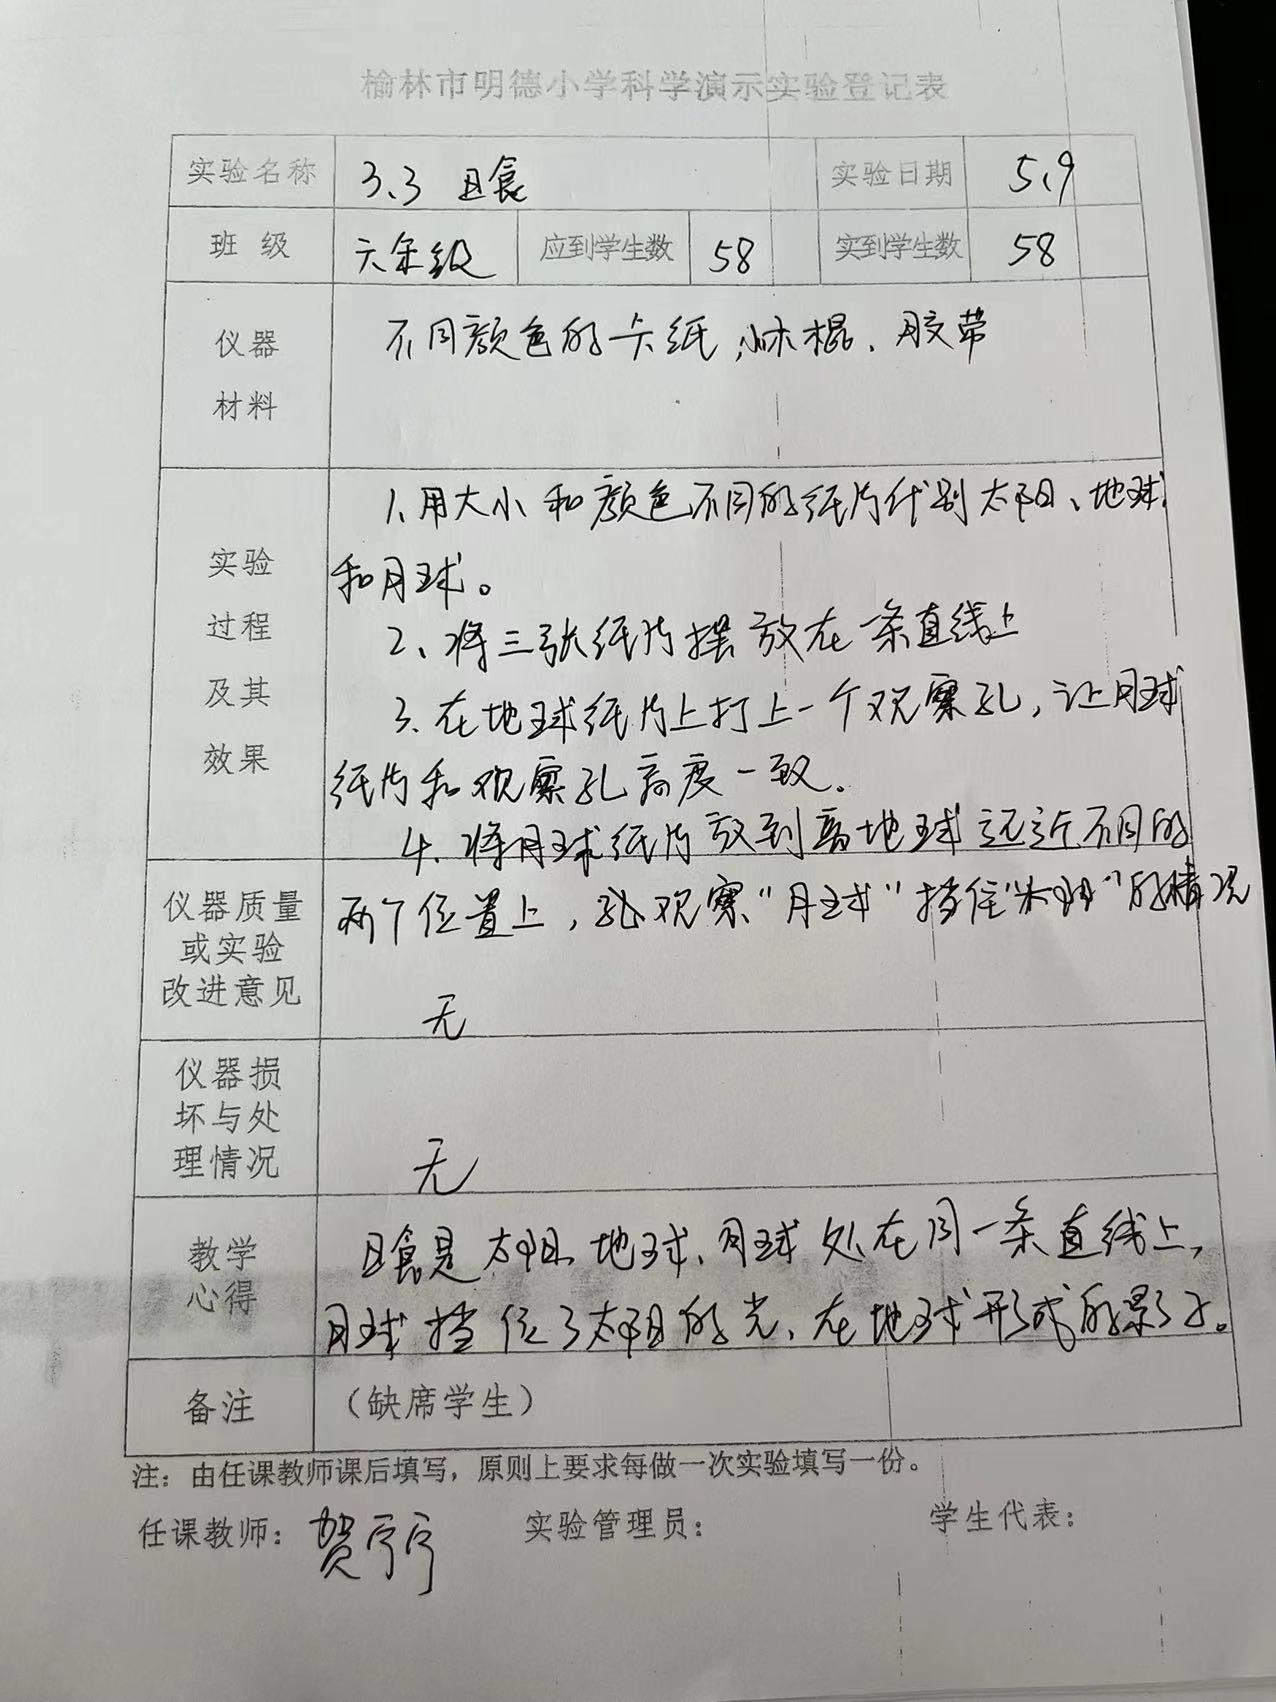 榆林市明德小学科学演示实验登记表
实验名称 3、3 日食 实验日期 5.9
班 级 六年级 应到学生数 58 实到学生数 58
仪器 不同颜色的卡纸、小木棍、胶带
材料
1、用大小和颜色不同的纸片代别太阳、地球
实验 和月球。
过程 2、将三张纸片摆放在一条直线上
及其 3、在地球纸片上打上一个观察孔，让月球
效果 纸片和观察孔高度一致。
4、将月球纸片放到离地球远近不同的
仪器质量 两个位置上，观察“月球”挡住“太阳”的情况
或实验
改进意见
无
仪器损
坏与处
理情况 无
教学 日食是太阳、地球、月球处在同一条直线上，
心得 月球挡住了太阳的光、在地球形成的影子。
备注 （缺席学生）
注：由任课教师课后填写，原则上要求每做一次实验填写一份。
任课教师：贺宁宁 实验管理员： 学生代表：